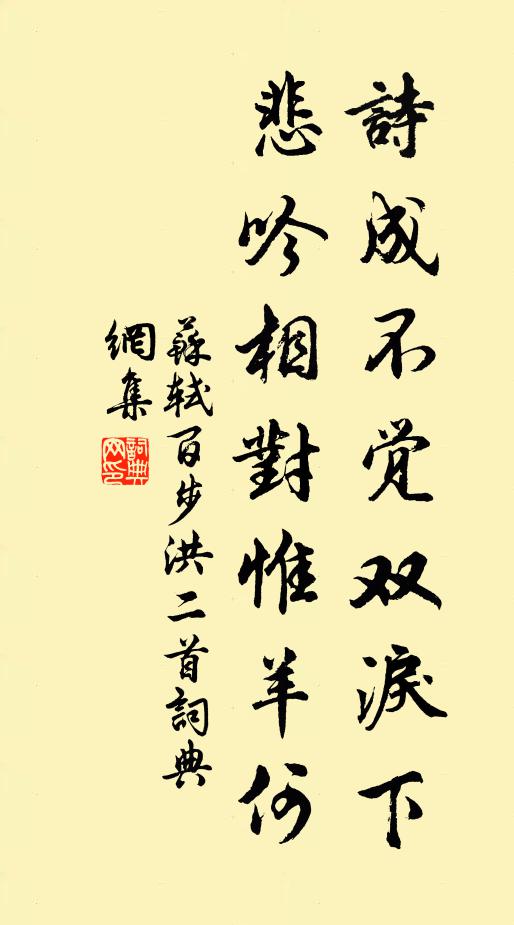 詩成不觉双淚下
悲吟相對惟羊何
蘇轼百步洪二首詞典
網集
詞典
网印